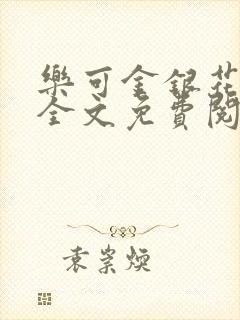 樂可金銀花
全文免費閱
袁崇煥